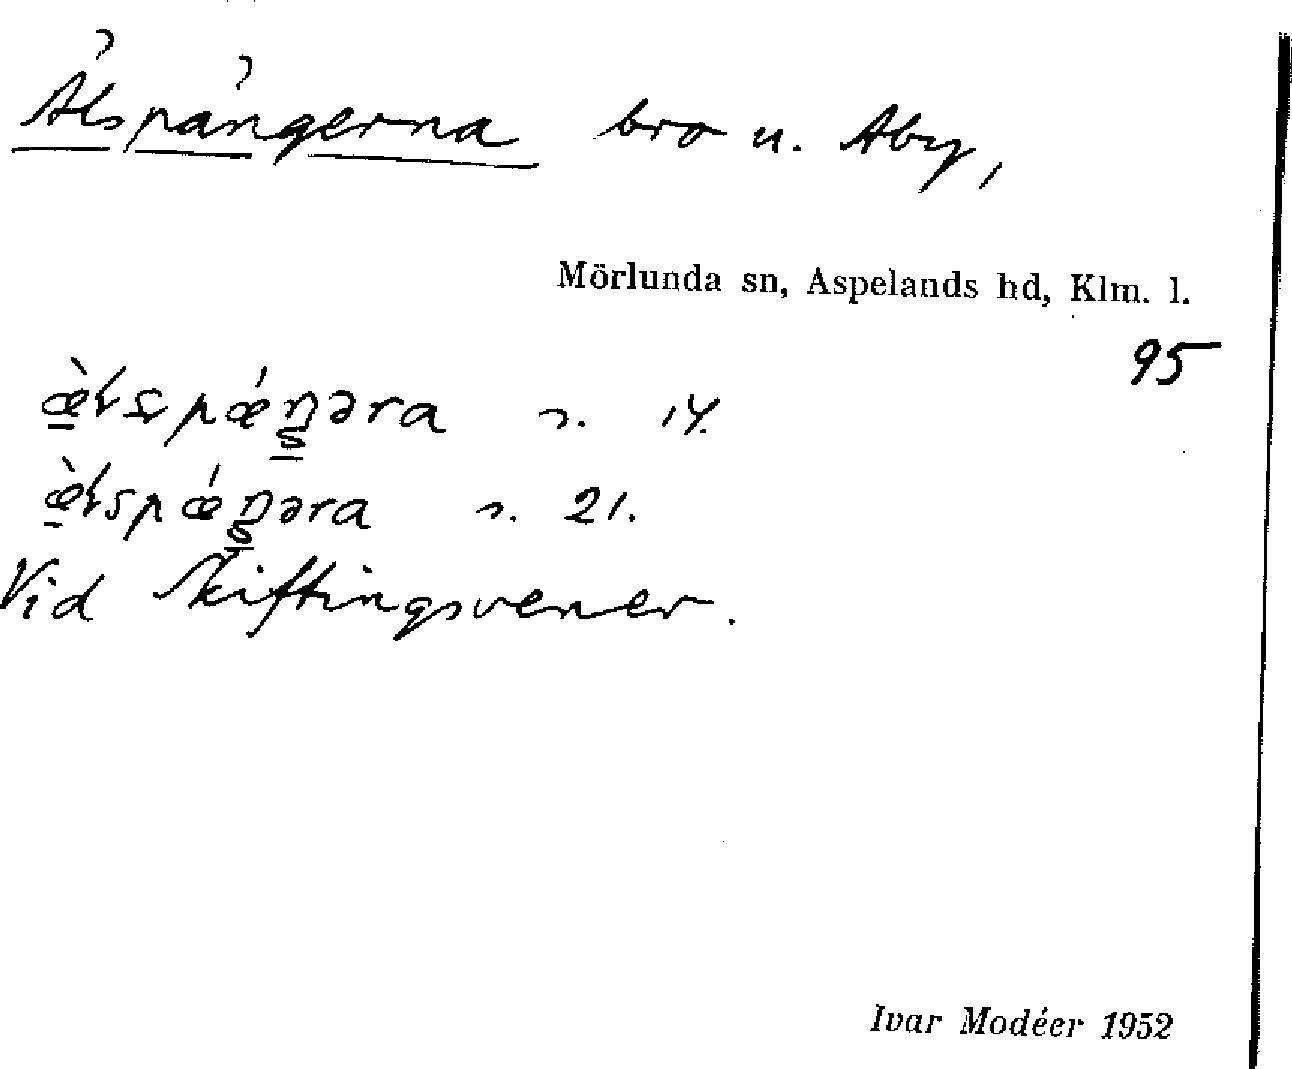 Älspängerna bro u. Åby,
Mörlunda sn, Aspelands hd, Klm. l.
95
æ̀lspǽŋəra s. 14.
æ̀lspǽŋəra s. 21.
Vid Skiftingsvener.
Ivar Modéer 1952